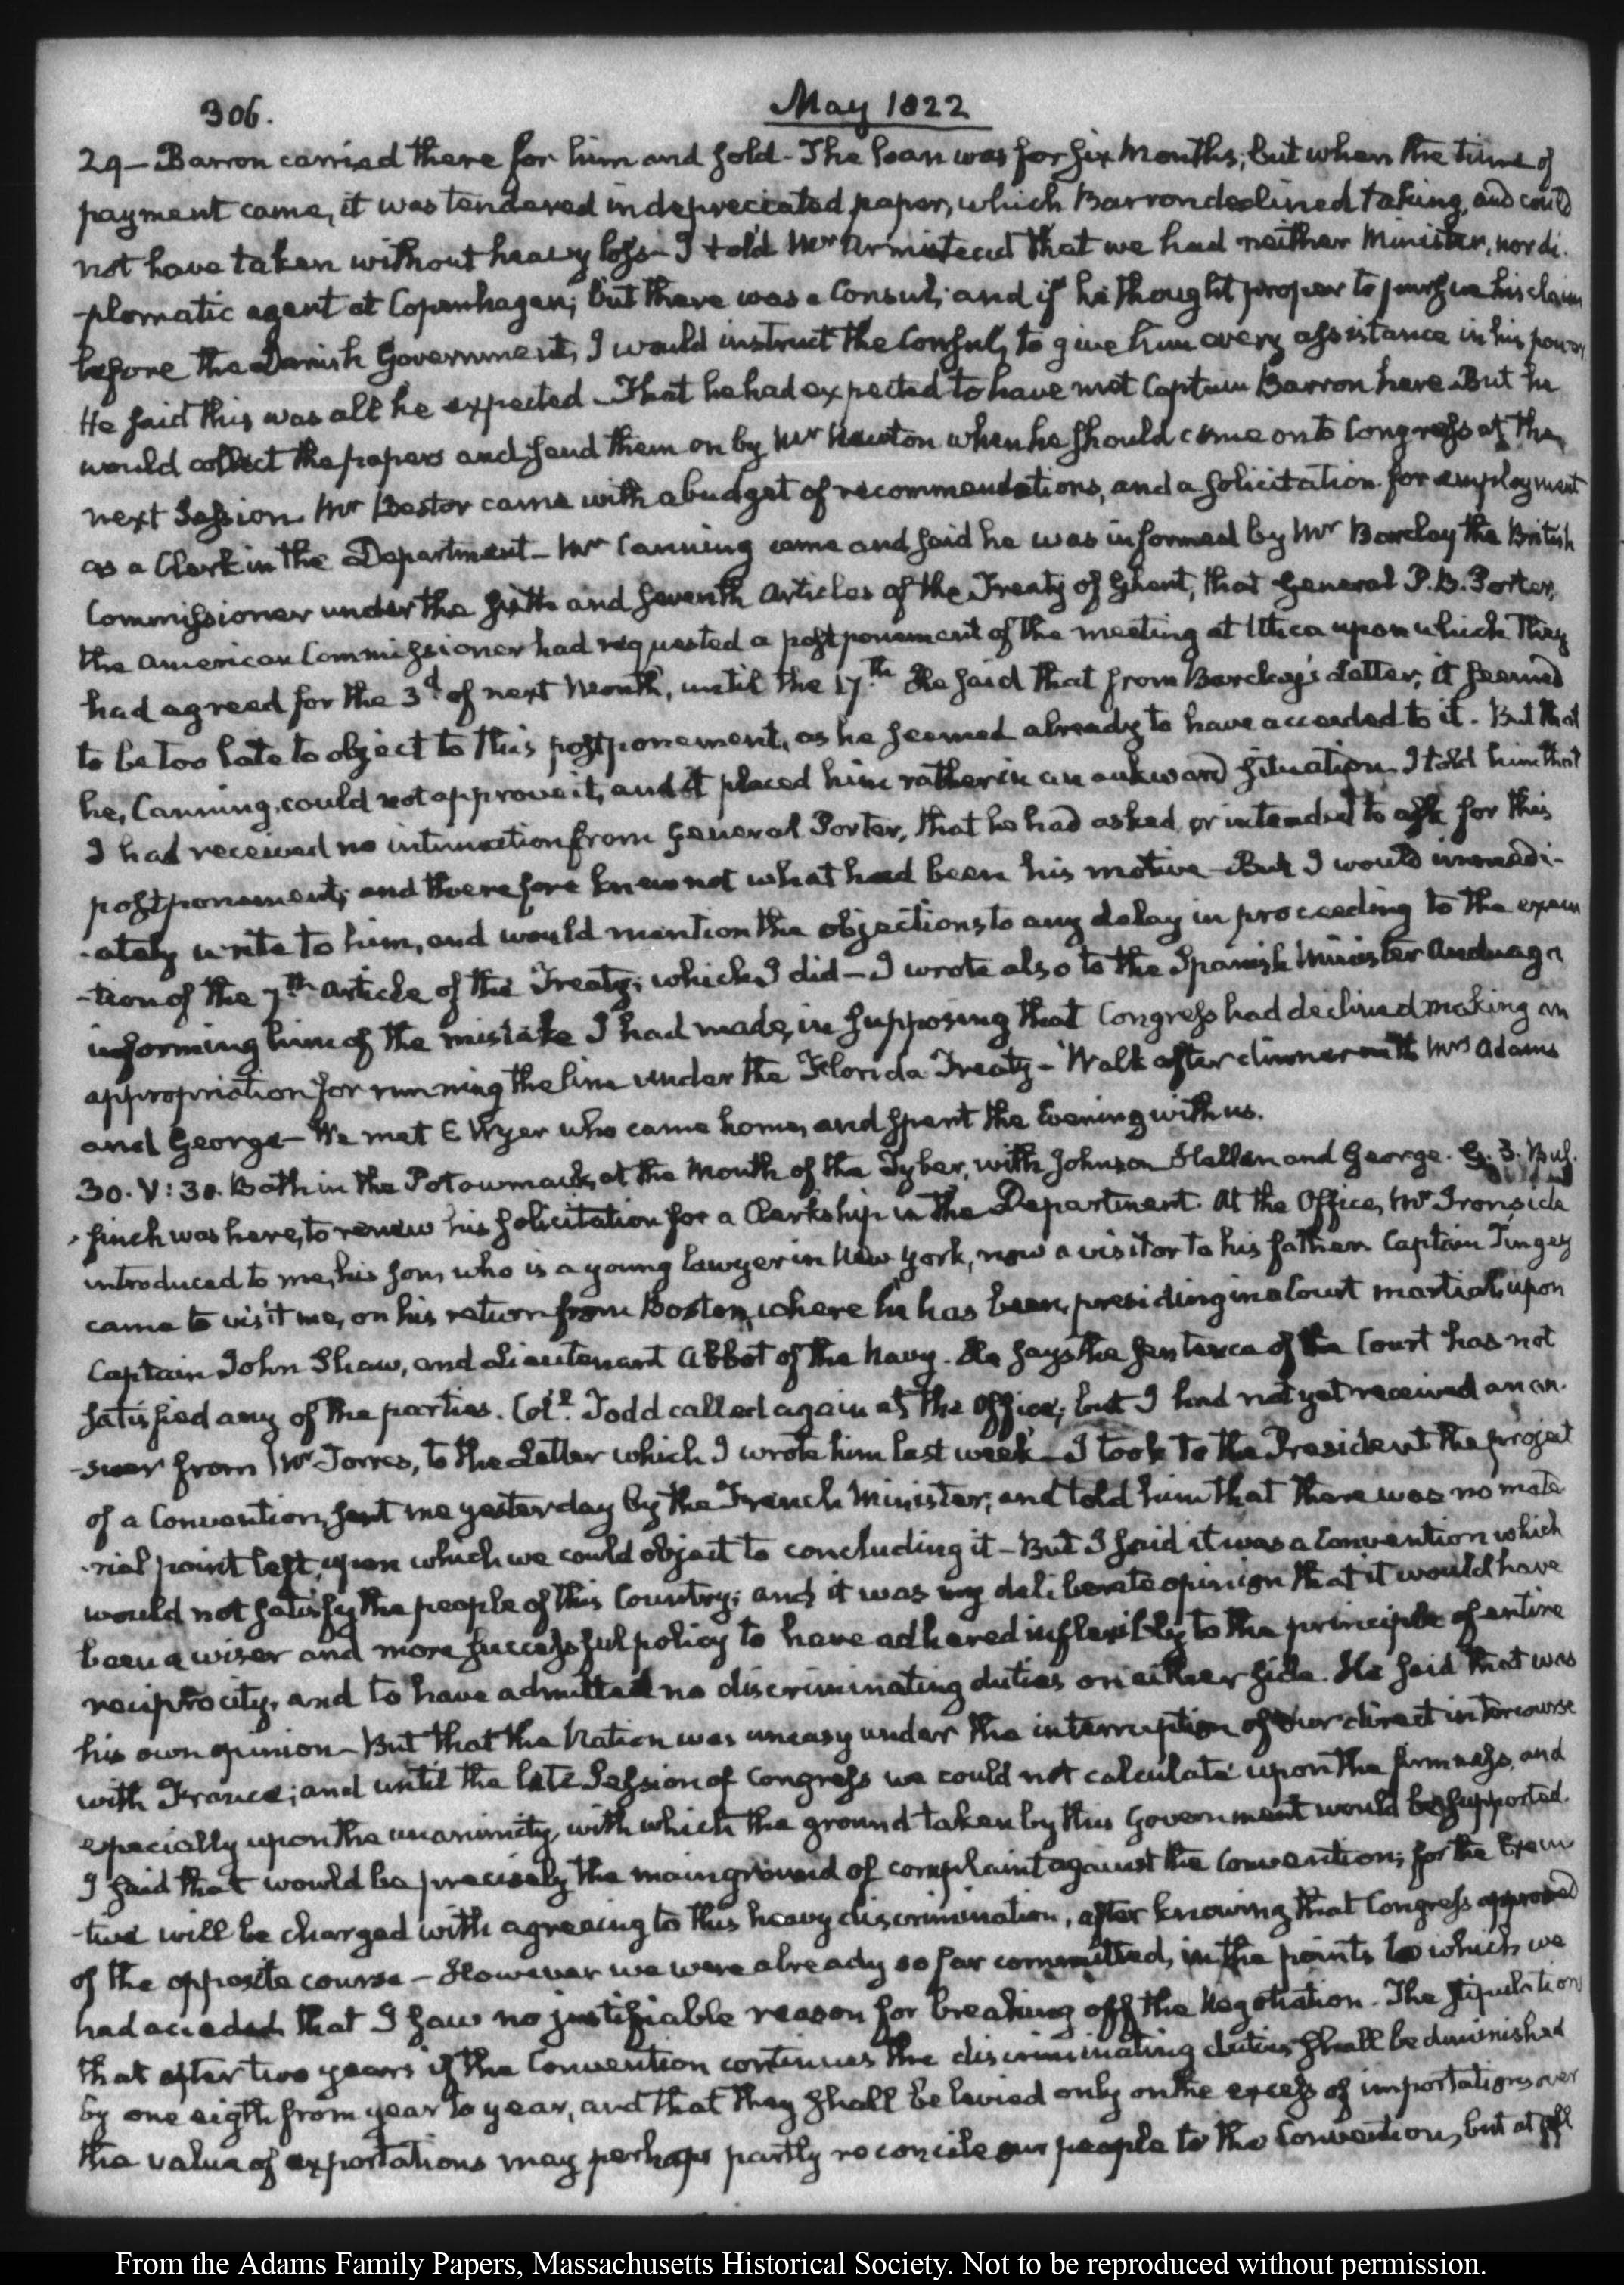 306.
May 1822
29 — Barron carried there for him and sold - The loan was for six Months; but when the time of
payment came, it was tendered in depreciated paper, which Barron declined taking, and could
not have taken without heavy loss - I told Mr Armistead that we had neither Minister, nor di-
-plomatic agent at Copenhagen; but there was a Consul; and if he thought proper to pursue his claim
before the Danish Government, I would instruct the Consul, to give him every assistance in his power
He said this was all he expected - That he had expected to have met Captain Barron here - But he
would collect the papers and send them on by Mr Newton when he should come on to Congress at the
next Session. Mr Bestor came with a budget of recommendations, and a solicitation for employment
as a Clerk in the Department - Mr Canning came and said he was informed by Mr Barclay the British
Commissioner under the sixth and seventh Articles of the Treaty of Ghent, that General P. B. Porter,
the American Commissioner had requested a postponement of the meeting at Utica upon which they
had agreed for the 3d of next Month, until the 17th He said that from Barclay's Letter, it seemed
to be too late to object to this postponement, as he seemed already to have acceeded to it. But that
he, Canning, could not approve it, and it placed him rather in an aukward situation. I told him that
I had received no intimation from General Porter, that he had asked, or intended to ask for this
postponement; and therefore knew not what had been his motive - But I would immedi-
-ately write to him, and would mention the objections to any delay in proceeding to the execu
-tion of the 7th Article of the Treaty; which I did — I wrote also to the Spanish Minister Anduaga
informing him of the mistake I had made, in supposing that Congress had declined making an
appropriation for running the line under the Florida Treaty - Walk after dinner with Mrs Adams
and George - We met E Wyer who came home, and spent the Evening with us.
30. V:30. Bath in the Potowmack, at the Mouth of the Tyber, with Johnson Hellen and George. G. B. Bul-
-finch was here, to renew his solicitation for a Clerkship in the Department. At the Office, Mr Ironside
introduced to me, his son, who is a young Lawyer in New York, now a visitor to his father. Captain Tingey
came to visit me, on his return from Boston, where he has been, presiding in a Court martial, upon
Captain John Shaw, and Lieutenant Abbot of the Navy. He says the sentence of the Court has not
satisfied any of the parties. Coll. Todd called again at the Office; but I had not yet received an an-
-swer from Mr Torres, to the Letter which I wrote him last week - I took to the President the project
of a Convention, sent me yesterday by the French Minister; and told him that there was no mate
-rial point left, upon which we could object to concluding it - But I said it was a Convention which
would not satisfy the people of this Country; and it was my deliberate opinion that it would have
been a wiser and more successful policy to have adhered inflexibly to the principle of entire
reciprocity, and to have admitted no discriminating duties on either side. He said that was
his own opinion - But that the Nation was uneasy under the interruption of our direct intercourse
with France; and until the late Session of Congress we could not calculate upon the firmness, and
especially upon the unanimity, with which the ground taken by this Government would be supported.
I said that would be precisely the main ground of complaint against the Convention; for the Execu
-tive will be charged with agreeing to this heavy discrimination, after knowing that Congress approved
of the opposite course - However we were already so far committed, in the points to which we
had acceded that I saw no justifiable reason for breaking off the Negotiation. The stipulation
that after two years if the Convention continues the discriminating duties shall be diminished
by one eigth from year to year, and that they shall be levied only on the excess of importations over
the value of exportations may perhaps partly reconcile our people to the Convention, but at all
From the Adams Family Papers, Massachusetts Historical Society. Not to be reproduced without permission.